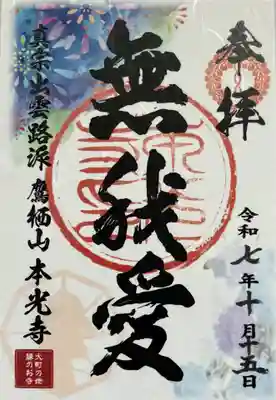 奉拝
令和七年十月十五日
無我愛
真宗出雲路派 鷹栖山 本光寺